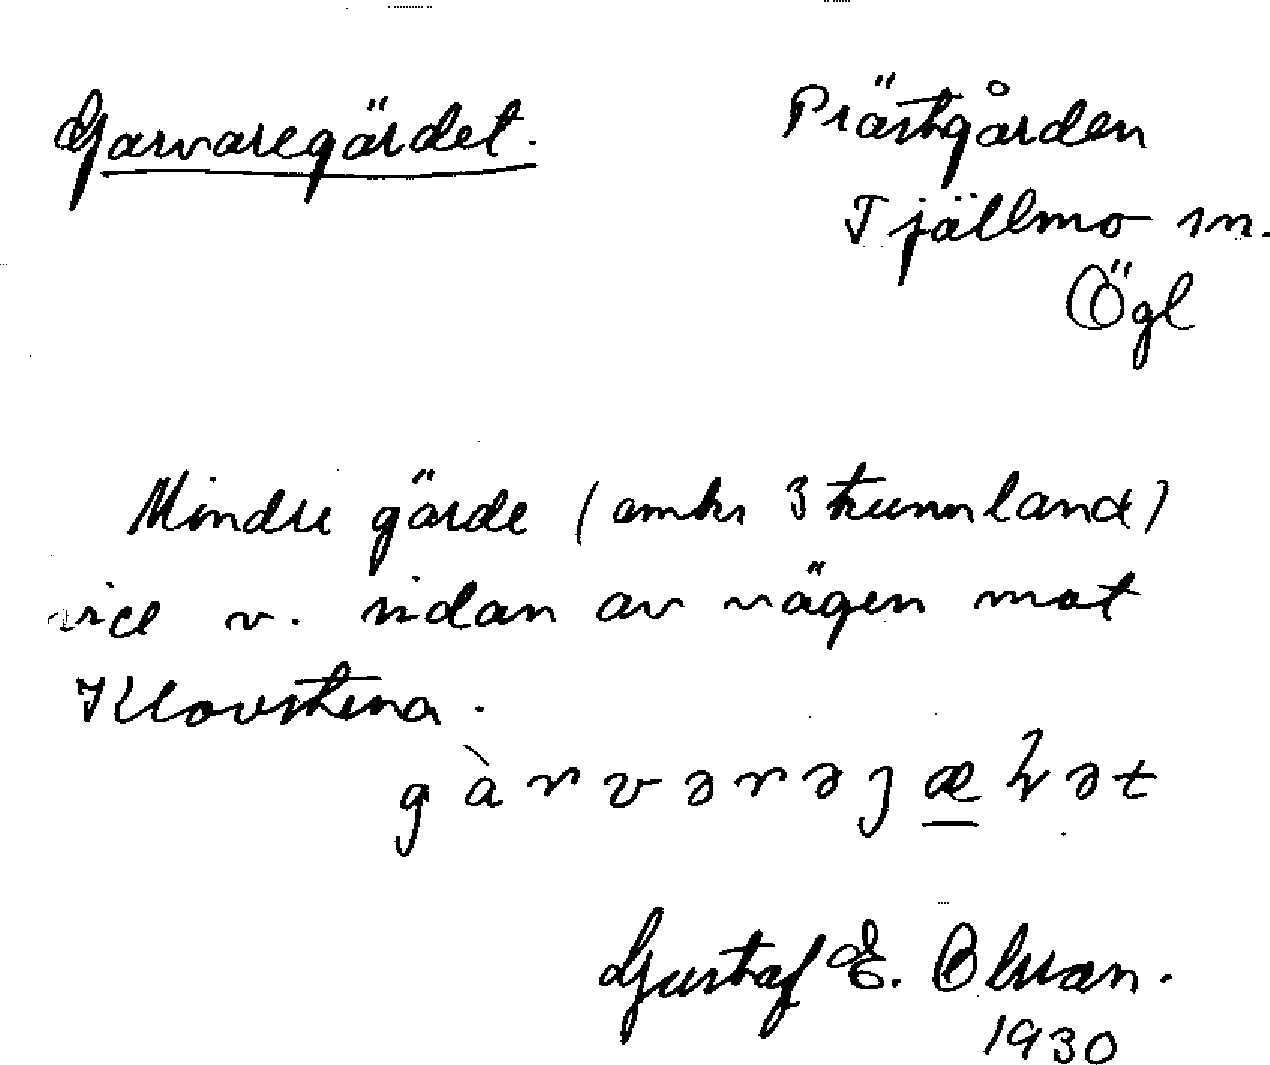 Garvaregärdet. Prästgården
Tjällmo sn.
Ögl
Mindre gärde (omkr 3 tunnland)
vid v. sidan av vägen mot
Klovstena.
gàrvərəȷæḷət
Gustaf E. Olsson.
1930